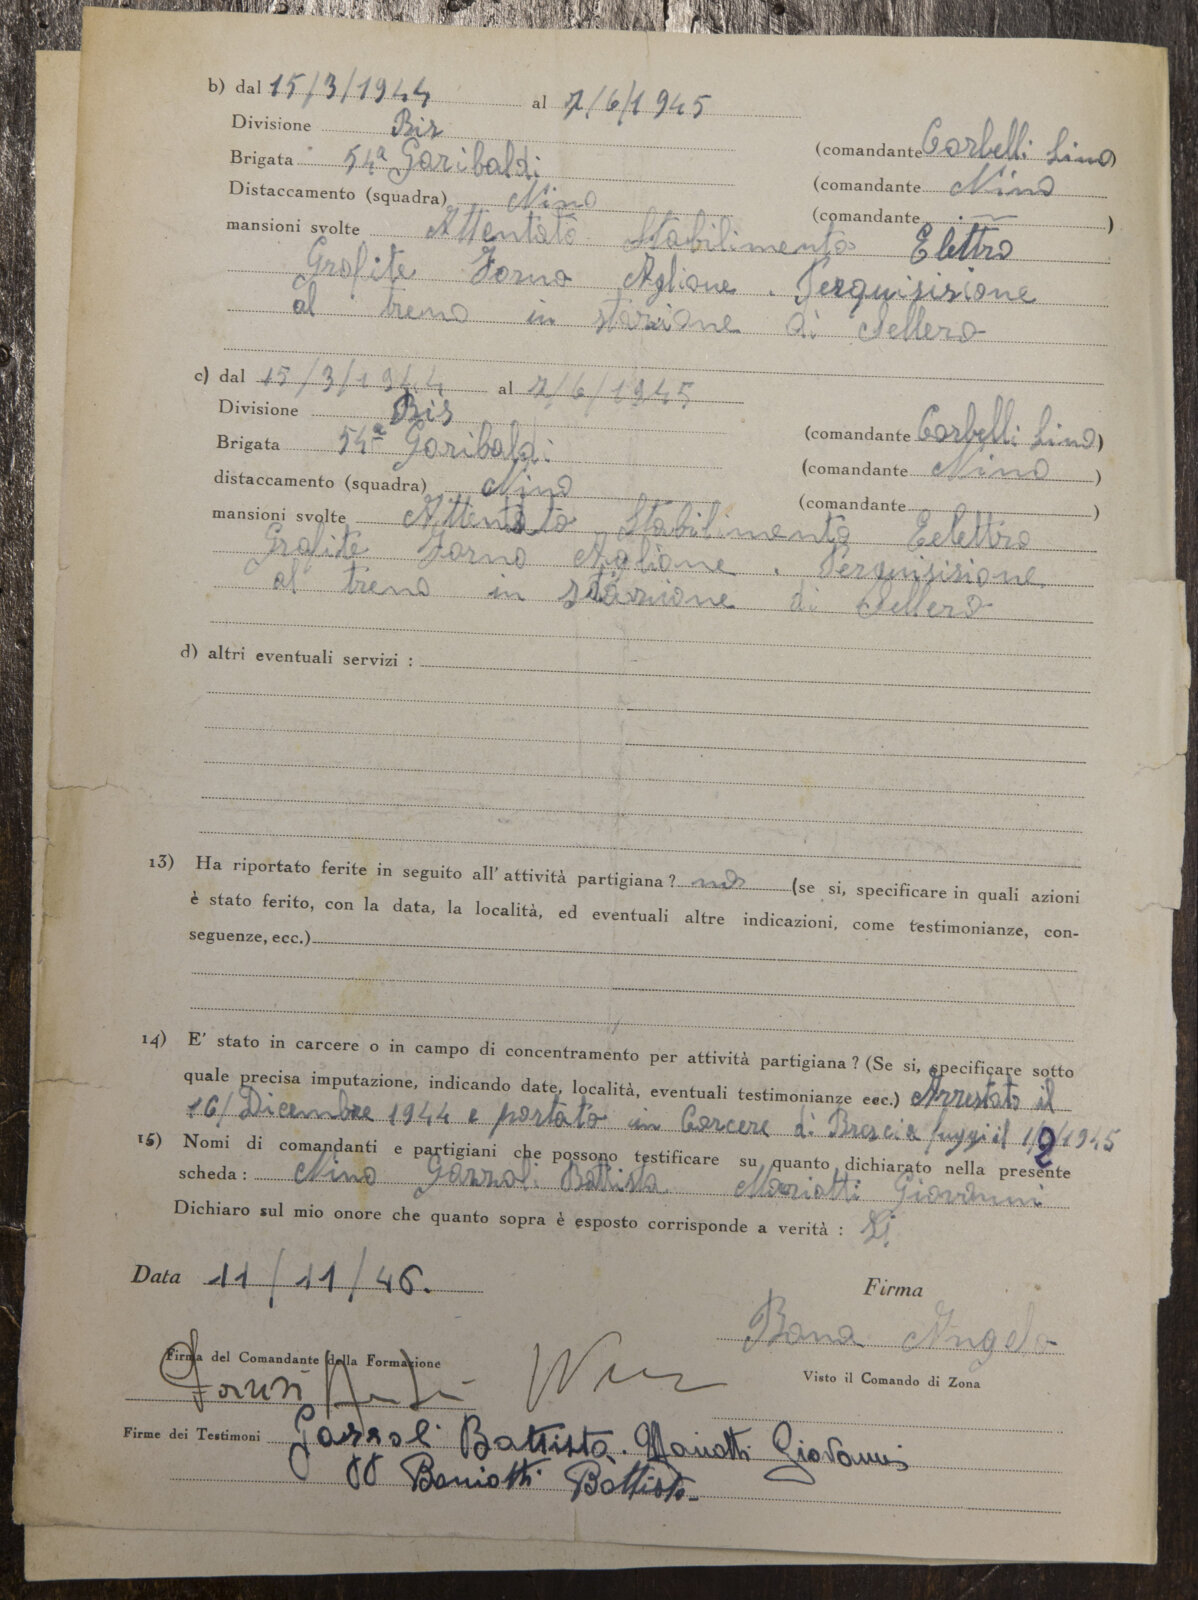 b) dal 15/3/1944 al 7/6/1945
Divisione Bis
Brigata 54ª Garibaldi (comandante Corbelli Lino)
Distaccamento (squadra) Nino (comandante Nino
mansioni svolte (comandante )
Attentato Stabilimento Elettro
Grafite Forno Aglione. Perquisizione
al treno in stazione di Sellero
c) dal 15/3/1944 al 7/6/1945
Divisione Bis
Brigata 54ª Garibaldi (comandante Corbelli Lino)
distaccamento (squadra) Nino (comandante Nino )
mansioni svolte (comandante )
Attentato Stabilimento Eelettro
Grafite Forno Aglione. Perquisizione
al treno in stazione di Sellero
d) altri eventuali servizi :
13) Ha riportato ferite in seguito all' attività partigiana ? no (se si, specificare in quali azioni
è stato ferito, con la data, la località, ed eventuali altre indicazioni, come testimonianze, con-
seguenze, ecc.)
14) E' stato in carcere o in campo di concentramento per attività partigiana ? (Se si, specificare sotto
quale precisa imputazione, indicando date, località, eventuali testimonianze ecc.) Arrestato il
16/Dicembre 1944 e portato in Carcere di Brescia fuggi il 1/2/1945
15) Nomi di comandanti e partigiani che possono testificare su quanto dichiarato nella presente
scheda : Nino Gazzoli Battista Mariotti Giovanni
Dichiaro sul mio onore che quanto sopra è esposto corrisponde a verità : Si
Data 11/11/46.
Firma
Bona Angelo
Firma del Comandante della Formazione
Visto il Comando di Zona
Firme dei Testimoni Gazzoli Battista. Mariotti Giovanni
Battista